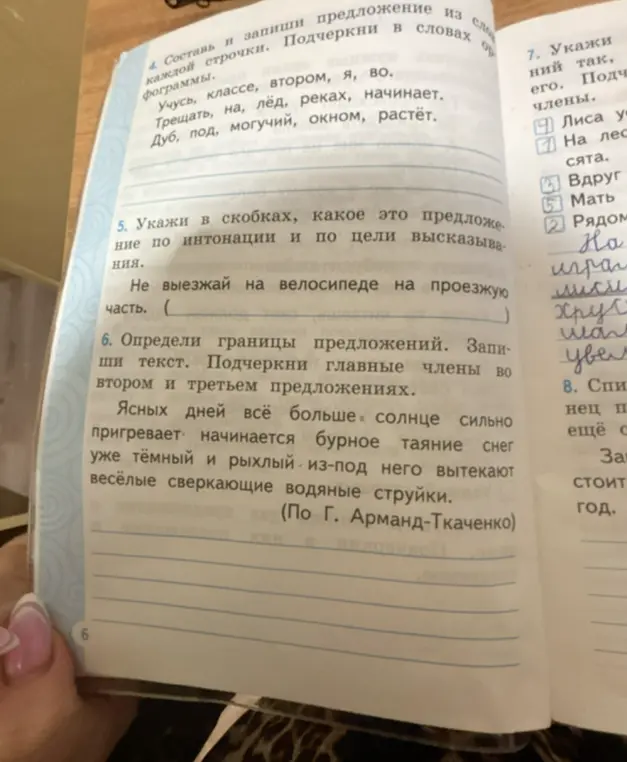 4. Составь и запиши предложение из
каждой строчки. Подчеркни в словах
фограммы.
Учусь, классе, втором, я, во.
Трещать, на, лёд, реках, начинает.
Дуб, под, могучий, окном, растёт.
5. Укажи в скобках, какое это предложе-
ние по интонации и по цели высказыва-
ния.
Не выезжай на велосипеде на проезжую
часть. ( )
6. Определи границы предложений. Запи-
ши текст. Подчеркни главные члены во
втором и третьем предложениях.
Ясных дней всё больше солнце сильно
пригревает начинается бурное таяние снег
уже тёмный и рыхлый из-под него вытекают
весёлые сверкающие водяные струйки.
(По Г. Арманд-Ткаченко)
6
7. Укажи
ний так,
его. Подч
члены.
4 Лиса у
1 На лес
сята.
3 Вдруг
5 Мать
2 Рядом
На
играл
лиси
хру
шал
увел
8. Спи
нец п
ещё с
За
стоит
год.